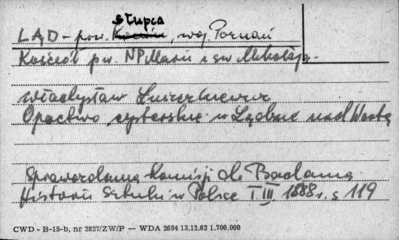 słupca
LĄD - pow. Konin, woj Poznań
Kościół pw. NPMarii i św Mikołaja.
Władysław Łuszczkiewicz
Opactwo cysterskie w Lądzie nad Wartą
Sprawozdania Komisji dla Badania
Historii Sztuki w Polsce T.III 1888 r. s 119
CWD - B-15-b, nr 2827/ZW/P — WDA 2694 13.12.62 1.700.000